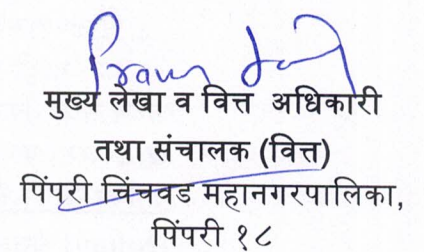 मुख्य लेखा व वित्त अधिकारी
तथा संचालक (वित्त)
पिंपरी चिंचवड महानगरपालिका,
पिंपरी १८